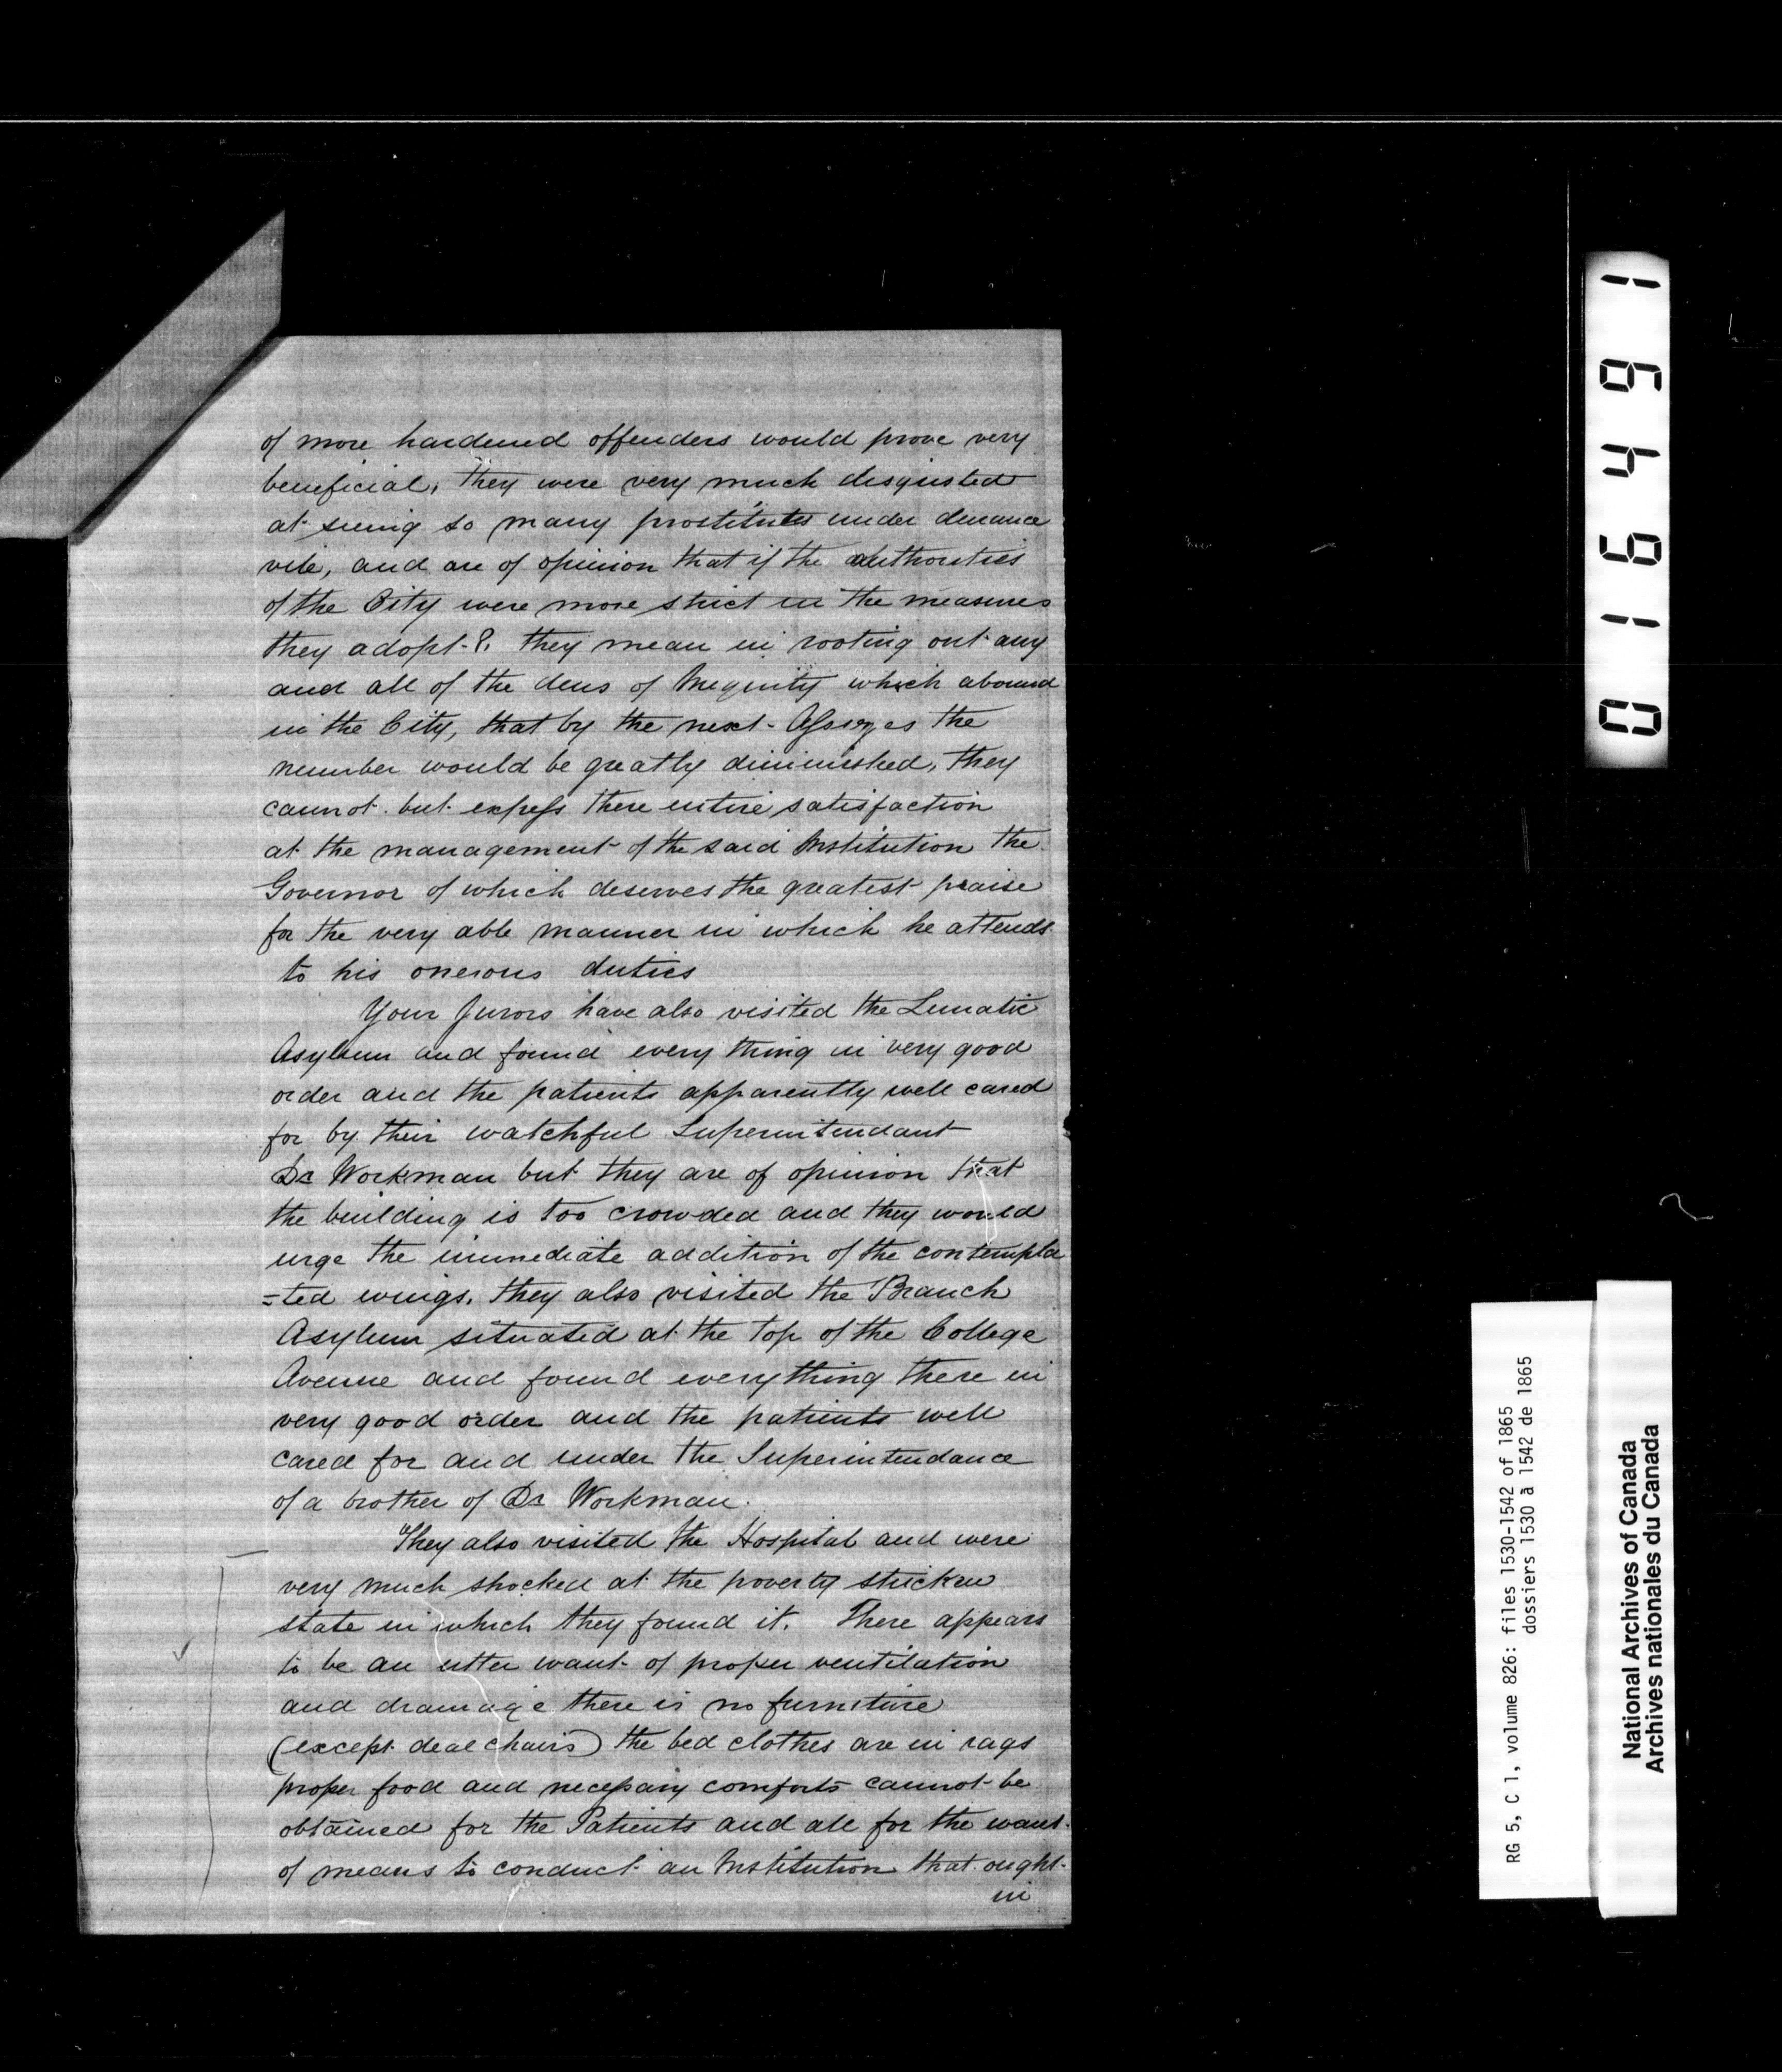 of more hardened offenders would prove very
beneficial, They were very much disgusted
at seeing so many prostitutes under durance
vile, and are of opinion that if the authorities
of the City were more strict in the measures
they adopt. they mean in rooting out any
and all of the dens of Inequity which abound
in the City, that by the next Assizes the
number would be greatly diminished, they
cannot but express there entire satisfaction
at the management of the said Institution the
Governor of which deserves the greatest praise
for the very able manner in which he attends
to his onerous duties
Your Jurors have also visited the Lunatic
Asylum and found every thing in very good
order and the patients apparently well cared
for by their watchful Superintendant
Dr Workman but they are of opinion that
the building is too crowded and they would
urge the immediate addition of the contempla
=ted wings. they also visited the Branch
Asylum situated at the top of the College
Avenue and found everything there in
very good order and the patients well
cared for and under the Superintendance
of a brother of Dr Workman.
They also visited the Hospital and were
very much shocked at the poverty stricken
state in which they found it. There appears
to be an utter want of proper ventilation
and drainage there is no furniture
(except deal chairs) the bed clothes are in rags
proper food and necessary comforts cannot be
obtained for the Patients and all for the want
of means to conduct an Institution that ought
in
016491
RG 5, C 1, volume 826: files 1530-1542 of 1865
dossiers 1530 à 1542 de 1865
National Archives of Canada
Archives nationales du Canada